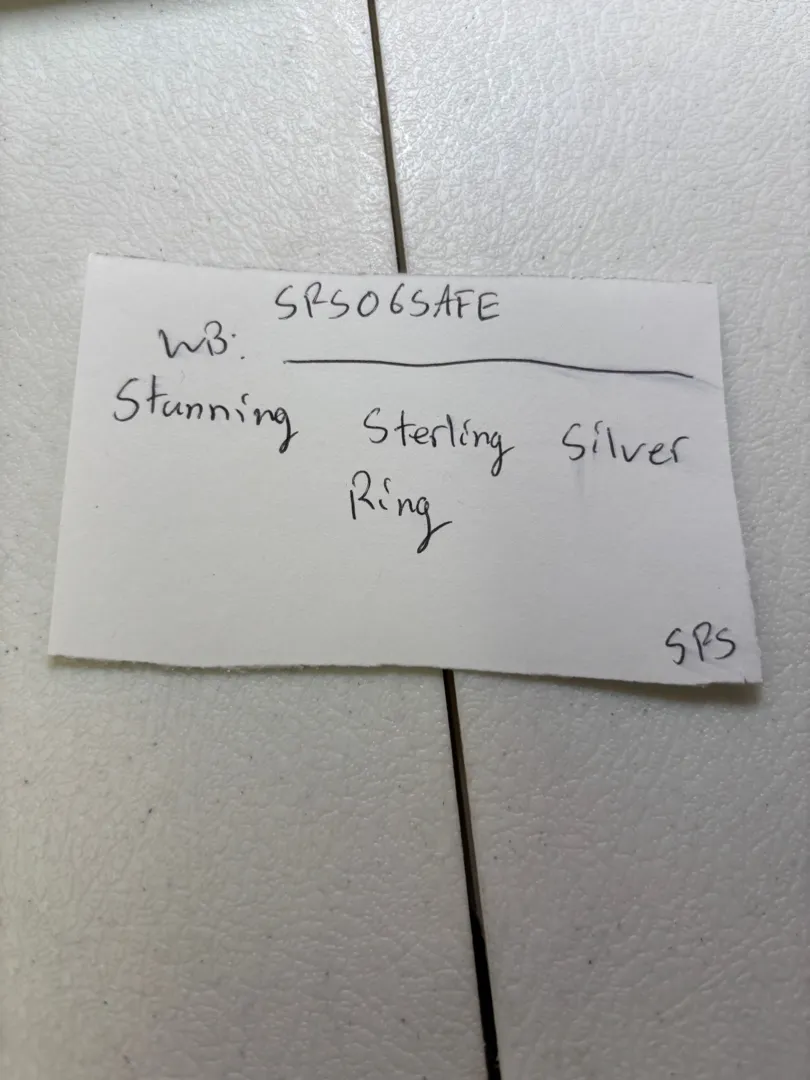 SPS06SAFE
WB:
Stunning Sterling Silver
Ring
SPS